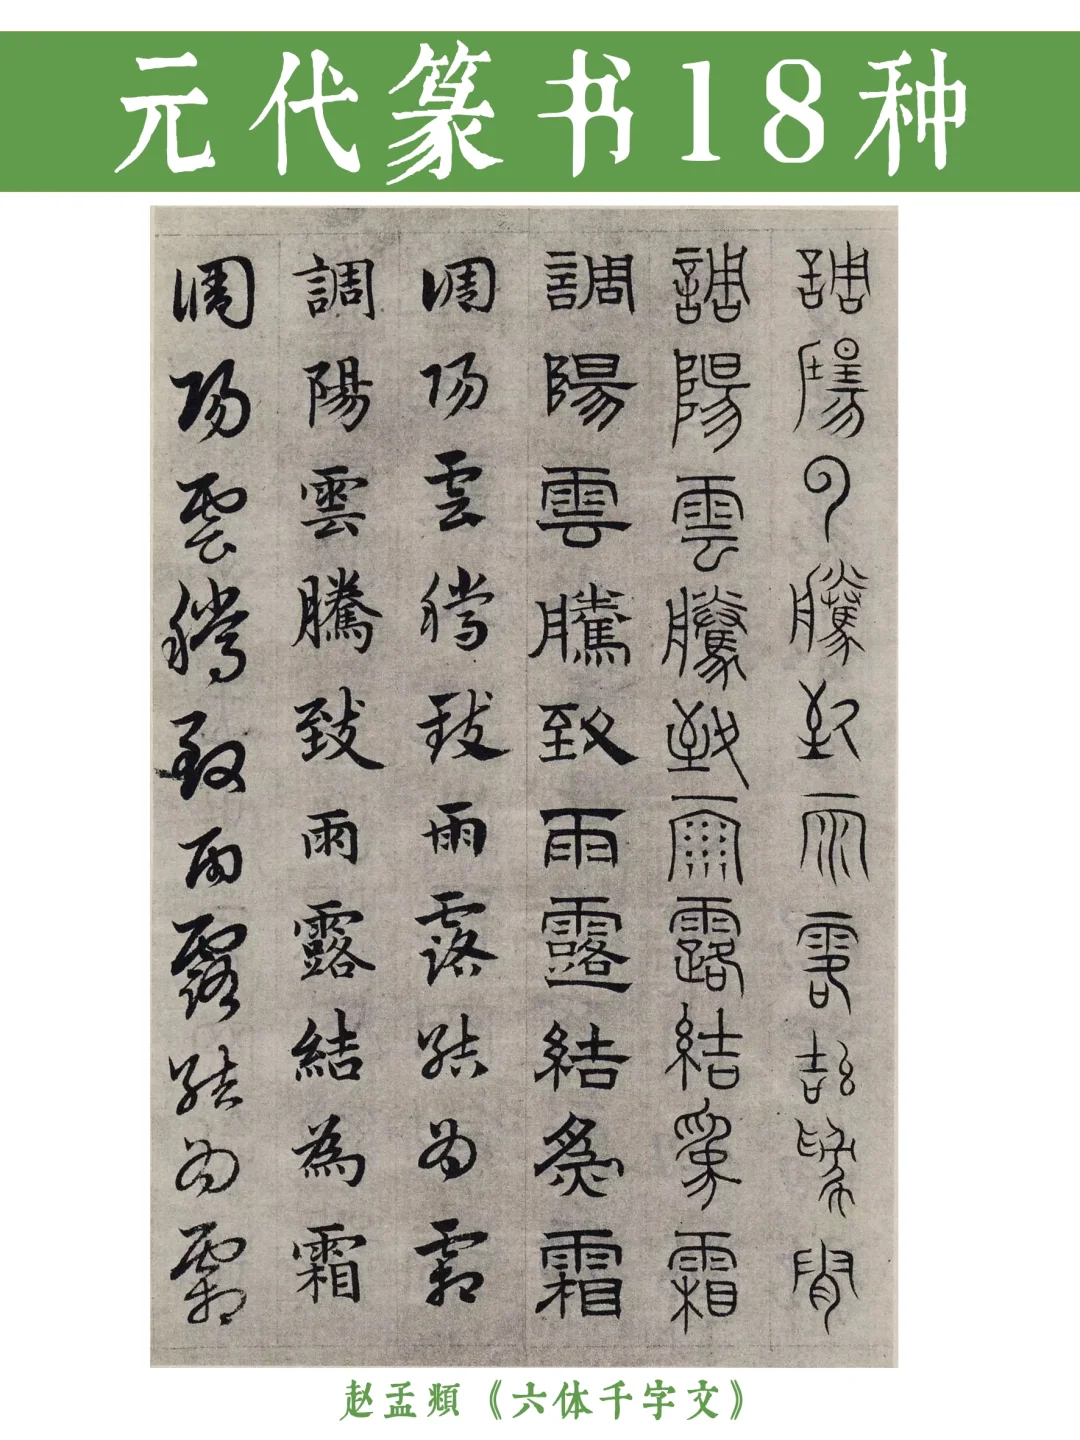 元代篆书18种
調陽雲騰致雨露結為霜
調陽雲騰致雨露結為霜
調陽雲騰致雨露結為霜
調陽雲騰致雨露結為霜
調陽雲騰致雨露結為霜
調陽雲騰致雨露結為霜
赵孟頫《六体千字文》